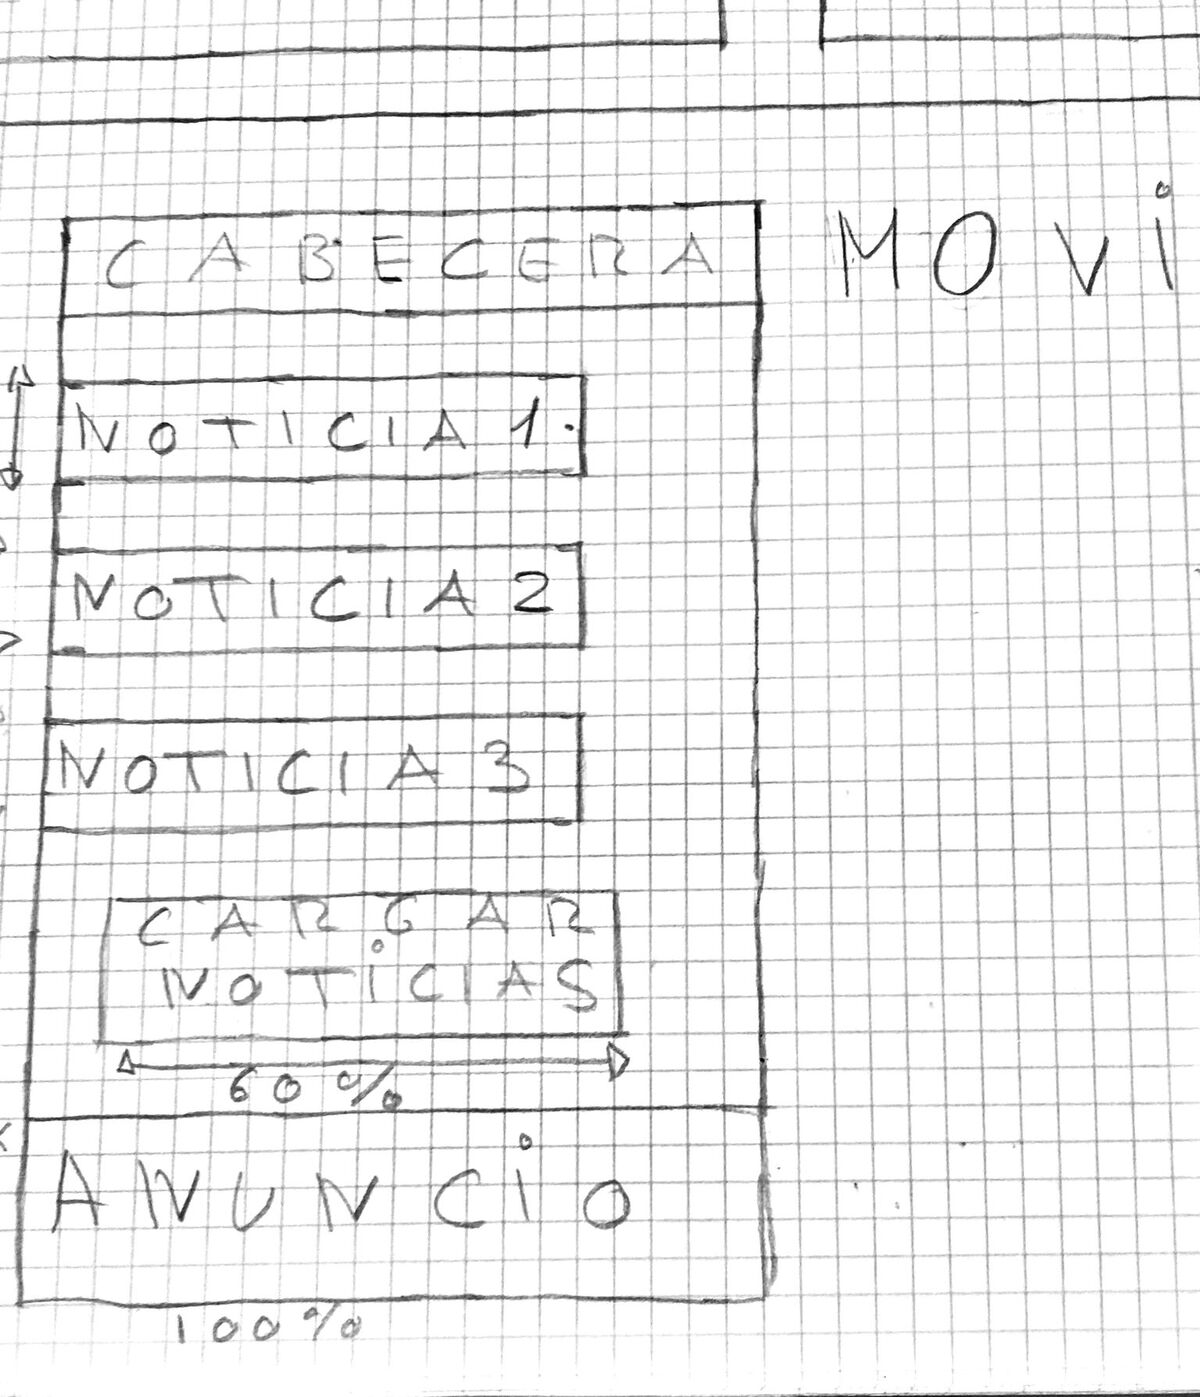 CABECERA
MOVi
NOTICIA 1.
NOTICIA 2
NOTICIA 3
CARGAR
NOTiCIAS
60%
ANUNCiO
100%